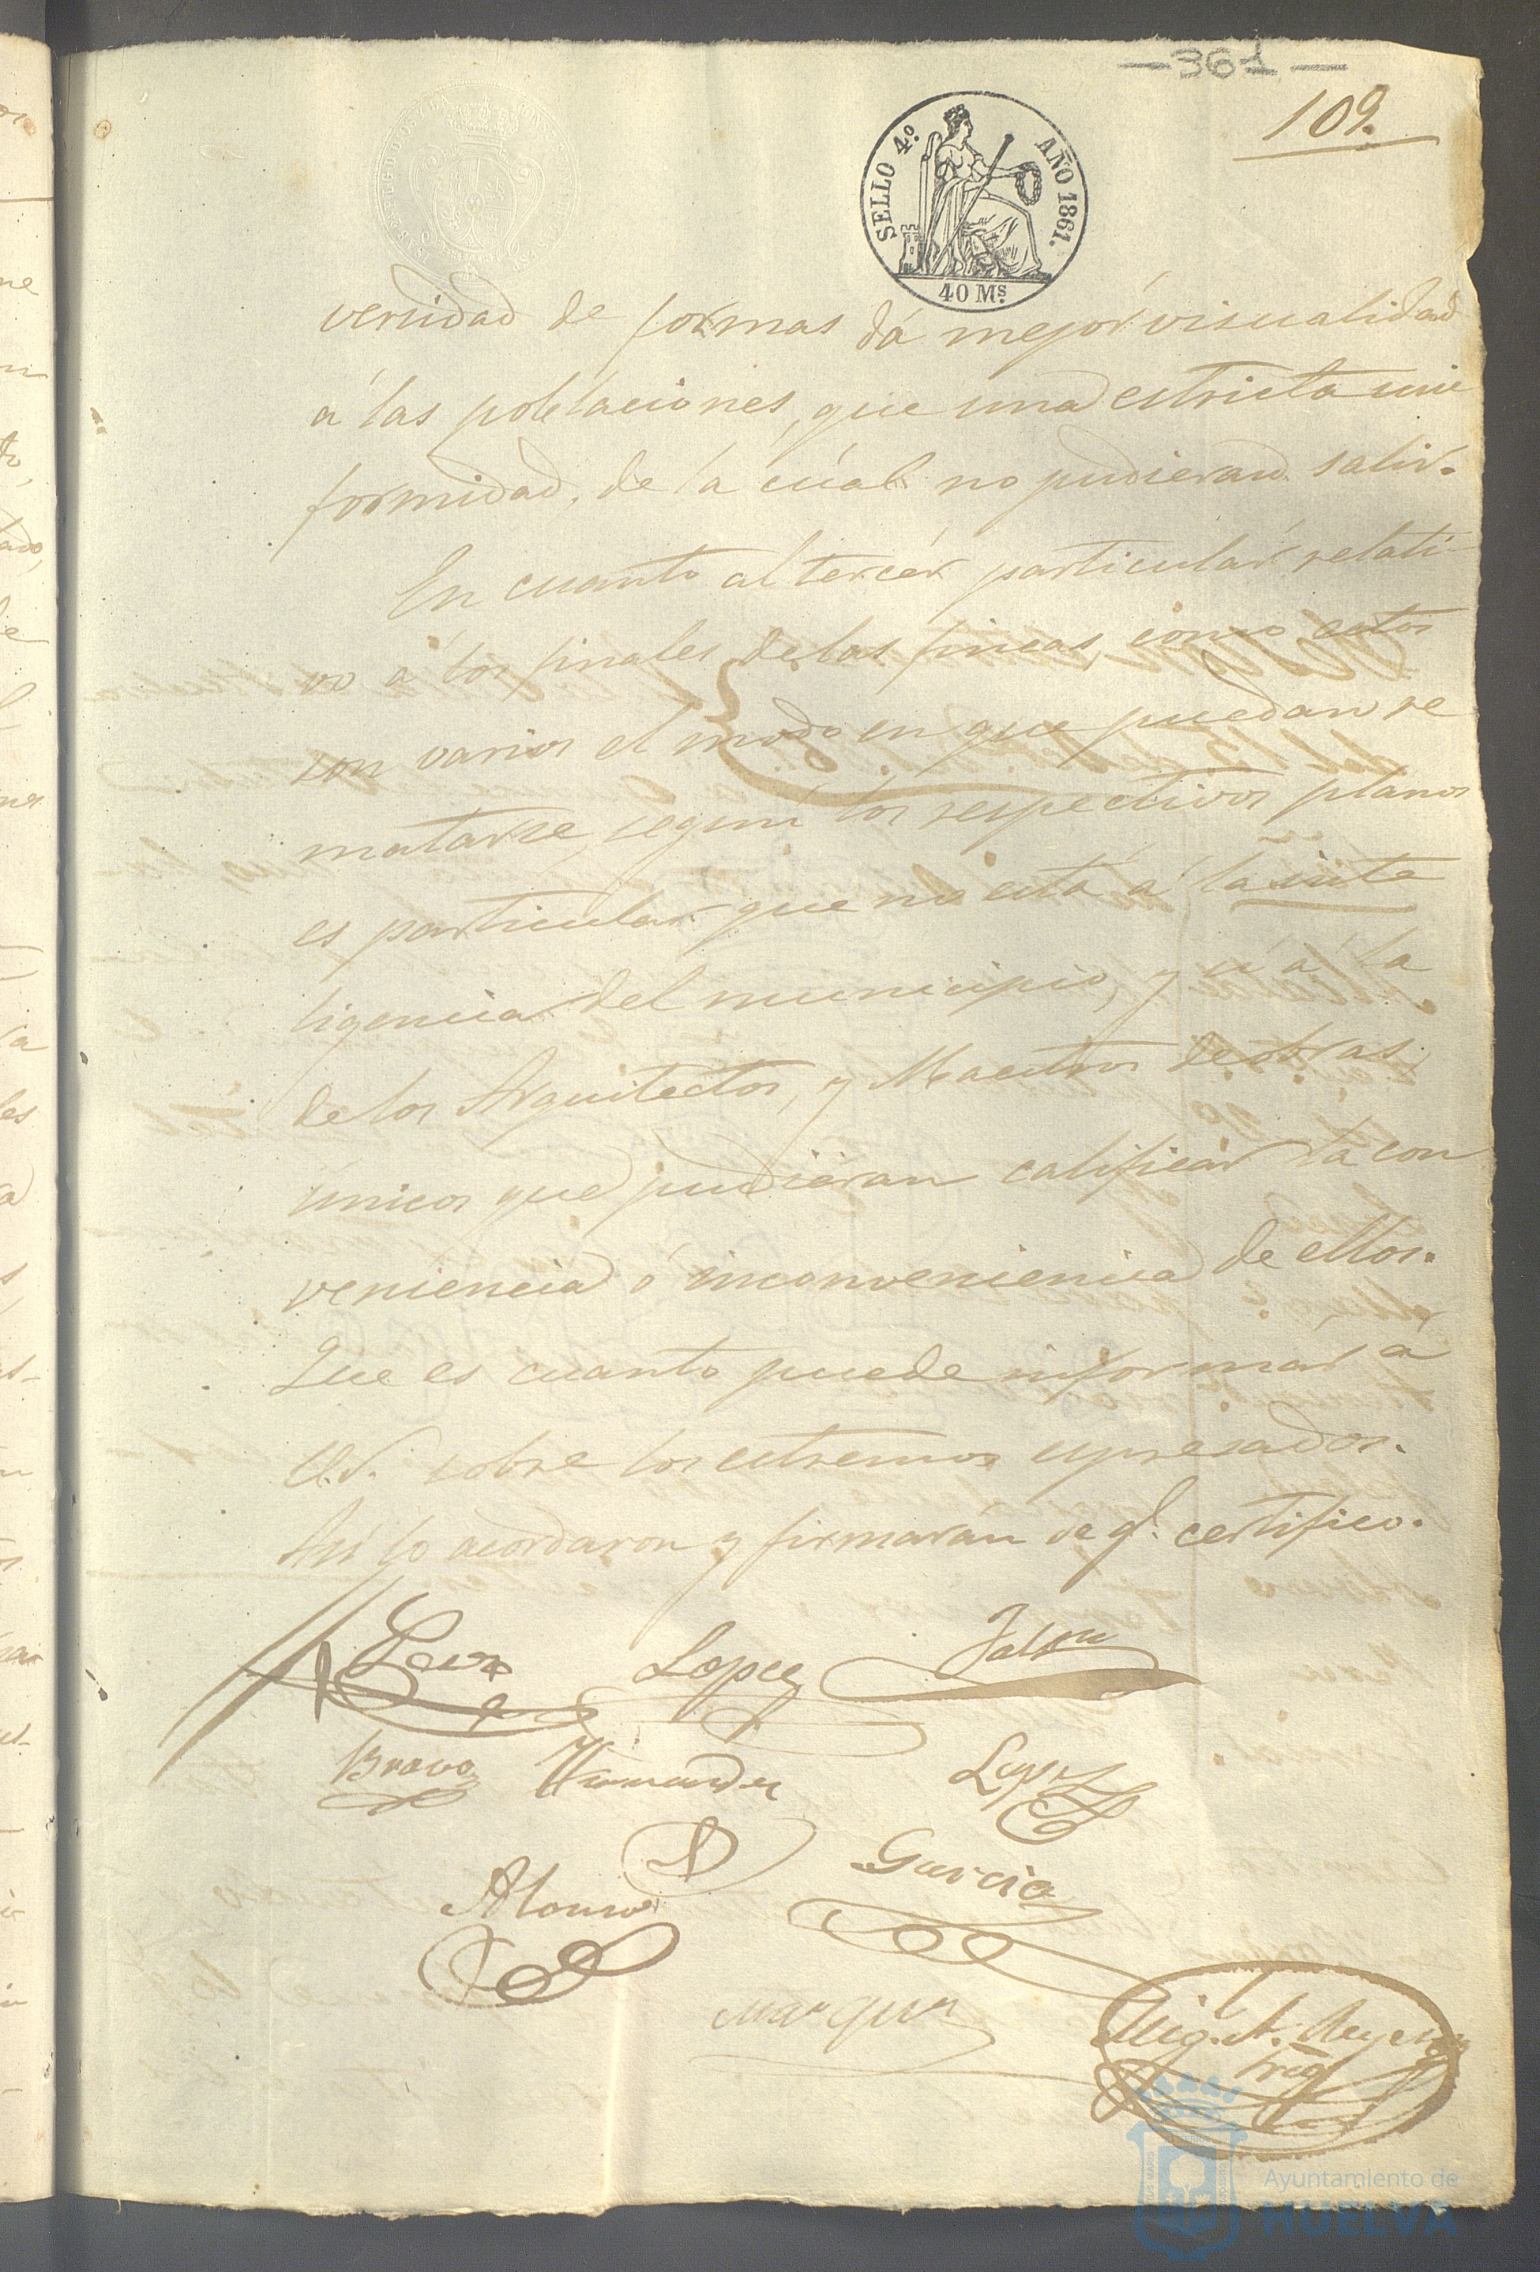 — 361 —
109.
SELLO 4.º AÑO 1861.
40 Ms.
versidad de formas dá mejór visualidad
á las poblaciones, que una estricta uni
formidad, de la cuál no pudieran salir.
En cuanto al tercér particulár relati-
vo á los finales de las fincas, como estos
son varios el modo en que puedan re
matarse, segun los respectivos planos
es particular que no está á la inte
ligencia del municipio, y sí á la
de los Arquitectos, y Maestros de obras,
únicos que pudiéran calificár la con
veniencia ó inconveniencia de ellos.
Que es cuanto puede informár á
V.S. sobre los estremos espresados.
Así lo acordaron y firmarán de q.e certifico.
Lopez
Bravo Hernandez Lopez
Alonso Garcia
Marquez
Mig. A.
Ayuntamiento de
HUELVA